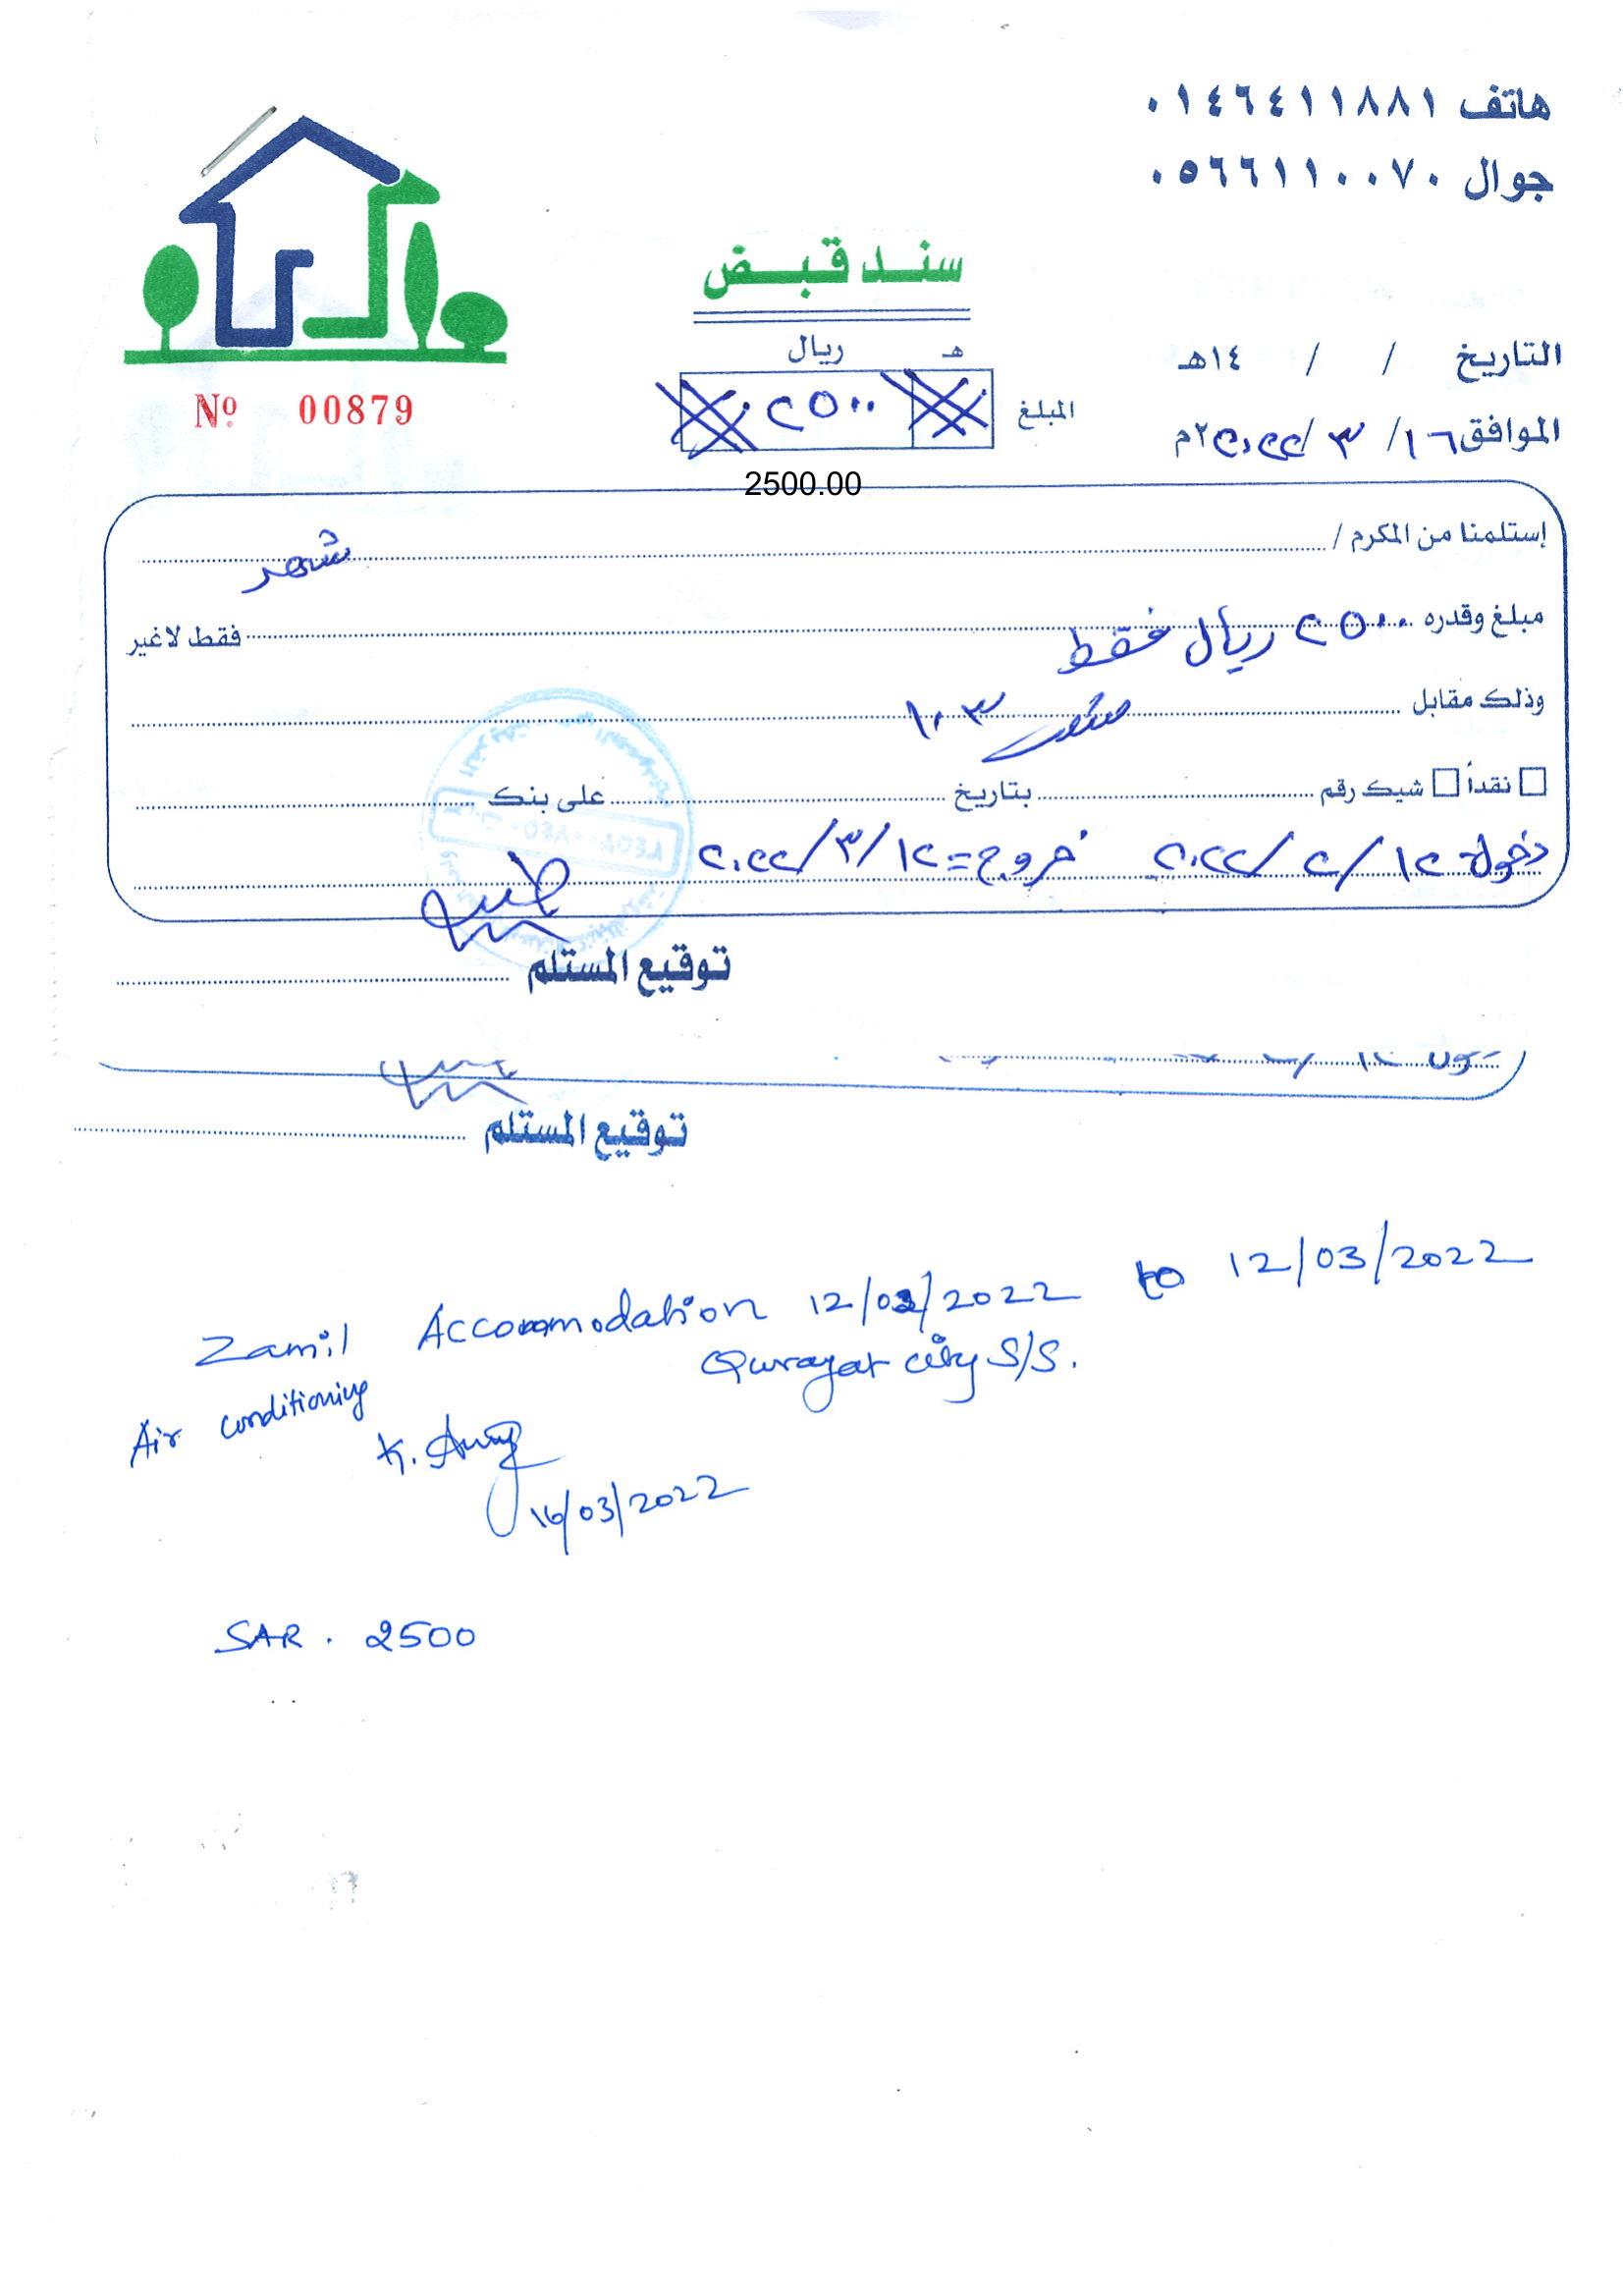 هاتف ٠١٤٦٤١١٨٨١
جوال ٠٥٦٦١١٠٠٧٠
سند قبض
ريال هـ
التاريخ / / ١٤هـ
المبلغ ٢٥٠٠
Nº 00879
الموافق ١٦/ ٣ /٢٠٢٢ ٢م
2500.00
إستلمنا من المكرم /
شهر
مبلغ وقدره ٢٥٠٠ ريال فقط فقط لاغير
وذلك مقابل ١٠٣
نقداً شيك رقم بتاريخ على بنك
دخول ١٢/ ٢/ ٢٠٢٢ خروج = ١٢/ ٣/ ٢٠٢٢
توقيع المستلم
توقيع المستلم
Zamil Accommodation 12/02/2022 to 12/03/2022
Air conditioning Qurayat city S/S.
K.
16/03/2022
SAR. 2500